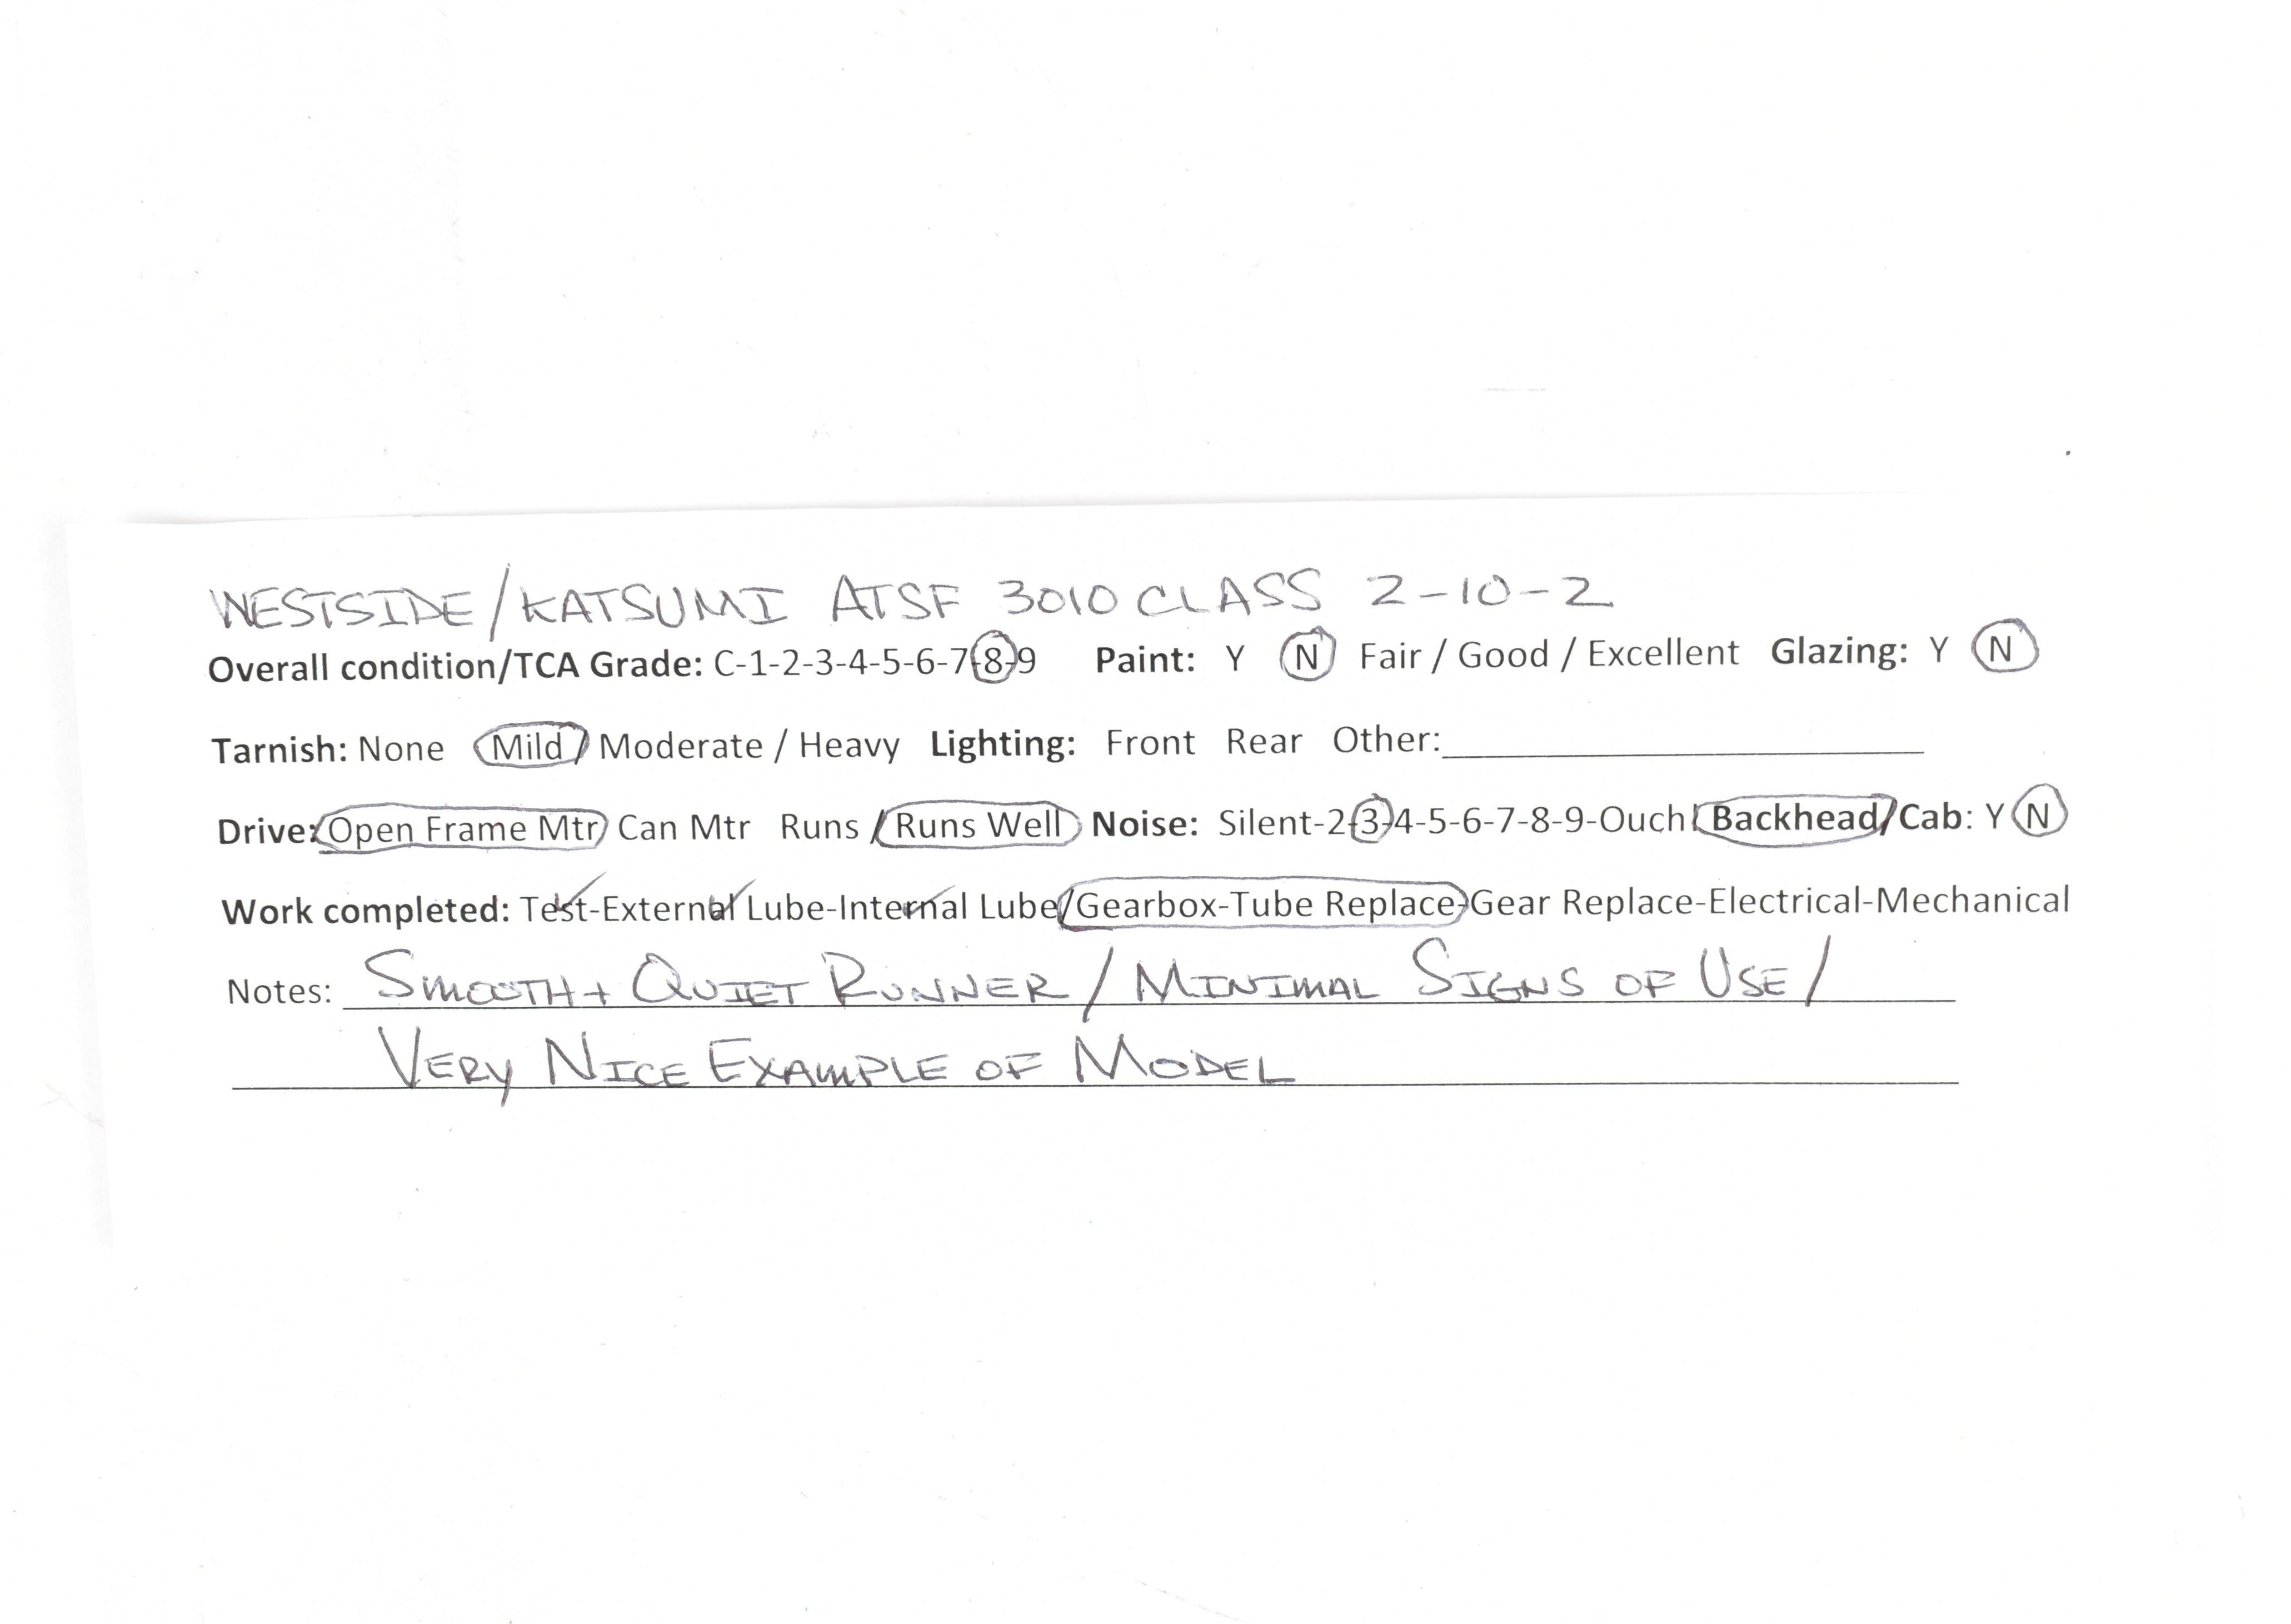 WESTSIDE/KATSUMI ATSF 3010 CLASS 2-10-2
Overall condition/TCA Grade: C-1-2-3-4-5-6-7-8-9 Paint: Y N Fair / Good / Excellent Glazing: Y N
Tarnish: None Mild / Moderate / Heavy Lighting: Front Rear Other:
Drive: Open Frame Mtr Can Mtr Runs / Runs Well Noise: Silent-2-3-4-5-6-7-8-9-Ouch! Backhead/Cab: Y N
Work completed: Test-External Lube-Internal Lube/Gearbox-Tube Replace-Gear Replace-Electrical-Mechanical
Notes: SMOOTH + QUIET RUNNER / MINIMAL SIGNS OF USE /
VERY NICE EXAMPLE OF MODEL